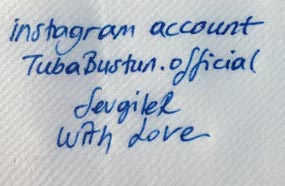 instagram account
TubaBustun.official
Sevgiler
With Love